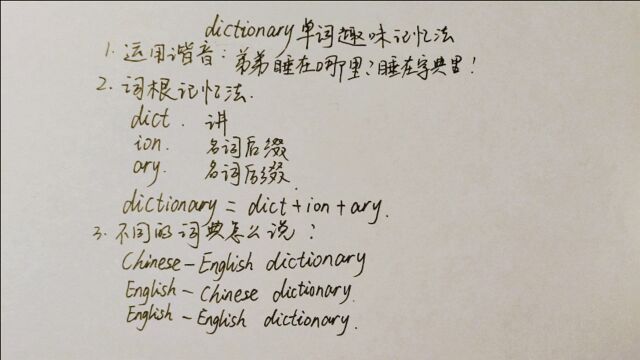 dictionary 单词趣味记忆法
1. 运用谐音：弟弟睡在哪里？睡在字典里！
2. 词根记忆法.
dict . 讲
ion. 名词后缀
ary. 名词后缀.
dictionary = dict+ion+ary.
3. 不同的词典怎么说？
Chinese-English dictionary
English-Chinese dictionary.
English-English dictionary.